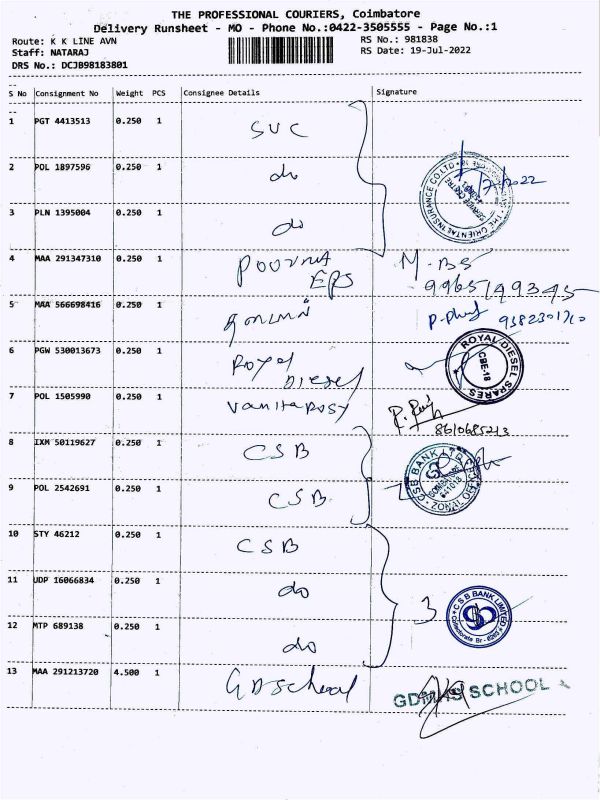 THE PROFESSIONAL COURIERS, Coimbatore
Delivery Runsheet - MO - Phone No.:0422-3505555 - Page No.:1
Route: K K LINE AVN
RS No.: 981838
Staff: NATARAJ
RS Date: 19-Jul-2022
DRS No.: DCJB98183801
S No Consignment No Weight PCS Consignee Details Signature
1 PGT 4413513 0.250 1 SUC
2 POL 1897596 0.250 1 do
3 PLN 1395004 0.250 1 do
THE ORIENTAL INSURANCE CO LTD
SERVICE CENTRE
4 MAA 291347310 0.250 1 Poorna EPS M.BS
9965149345
5 MAA 566698416 0.250 1
9382301710
6 PGW 530013673 0.250 1 Royal Diesel
ROYAL DIESEL SPARES
CBE-18
7 POL 1505990 0.250 1
8610685213
8 IXM 50119627 0.250 1 CSB
CSB BANK LTD
9 POL 2542691 0.250 1 CSB
10 STY 46212 0.250 1 CSB
11 UDP 16066834 0.250 1 do
3
CSB BANK LIMITED
12 MTP 689138 0.250 1 do
13 MAA 291213720 4.500 1 GD School
SCHOOL